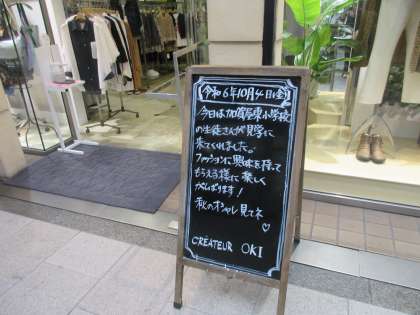 令和6年10月4日(金)
今日は加賀屋東小学校
の生徒さんが見学に
来てくれました。
ファッションに興味を持って
もらえる様に楽しく
がんばります！
秋のオシャレ見てネ
♡
CREATEUR OKI